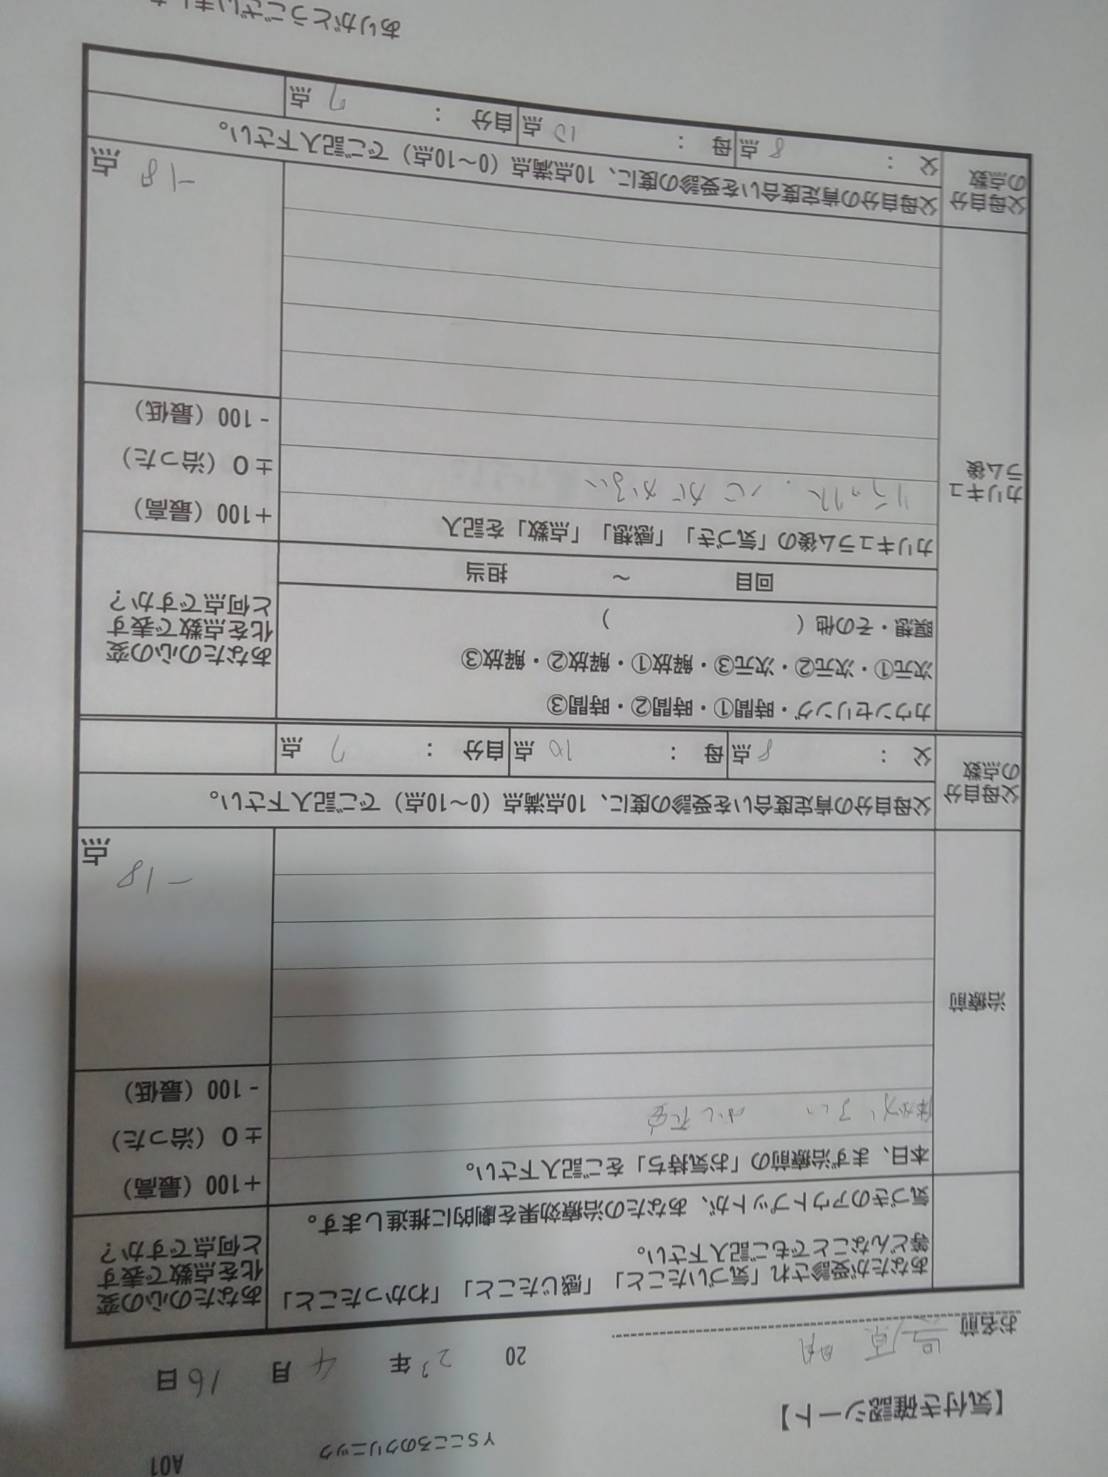 A01
YSこころのクリニック
【気付き確認シート】
2023年 4月 16日
お名前
あなたが受診され「気づいたこと」「感じたこと」「わかったこと」
等どんなことでもご記入下さい。
気づきのアウトプットが、あなたの治療効果を劇的に推進します。
あなたの心の変
化を点数で表す
と何点ですか？
治療前
本日、まず治療前の「お気持ち」をご記入下さい。
少し不安
+100（最高）
±0（治った）
-100（最低）
-18
点
父母自分
の点数
父母自分の肯定度合いを受診の度に、10点満点（0～10点）でご記入下さい。
父 ： 8 点 母 ： 10 点 自分 ： 7 点
カリキュ
ラム後
カウンセリング・時間①・時間②・時間③
次元①・次元②・次元③・解放①・解放②・解放③
瞑想・その他（ ）
回目 ～ 担当
あなたの心の変
化を点数で表す
と何点ですか？
カリキュラム後の「気づき」「感想」「点数」を記入
心がかるい
+100（最高）
±0（治った）
-100（最低）
-18
点
父母自分
の点数
父母自分の肯定度合いを受診の度に、10点満点（0～10点）でご記入下さい。
父 ： 8 点 母 ： 10 点 自分 ： 7 点
ありがとうございました